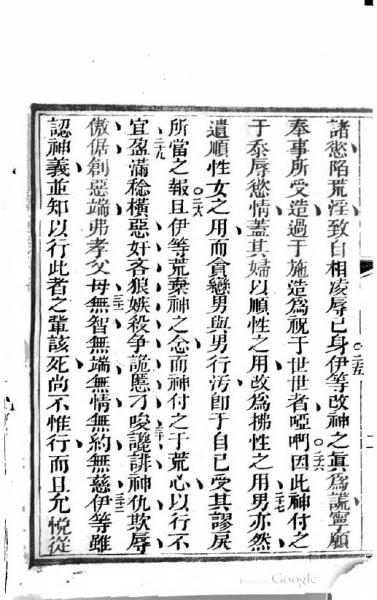 諸慾陷荒淫致自相凌辱己身伊等攺神之眞爲謊寧願
二五
奉事所受造過于施造爲祝于世世者啞㗒因此神付之
二六
于忝辱慾情蓋其婦以順性之用攺爲拂性之用男亦然
二七
遺順性女之用而貪戀男與男行汚卽于自己受其謬戾
二八
所當之報且伊等荒棄神之念而神付之于荒心以行不
二九
宜盈滿橫惡奸吝狼嫉殺争詭慝刁唆讒誹神仇欺辱
三十
傲倨創惡端弗孝父母無智無端無情無約無慈伊等雖
三一
三二
認神義並知以行此者之輩該死尚不惟行而且允悅從
Google